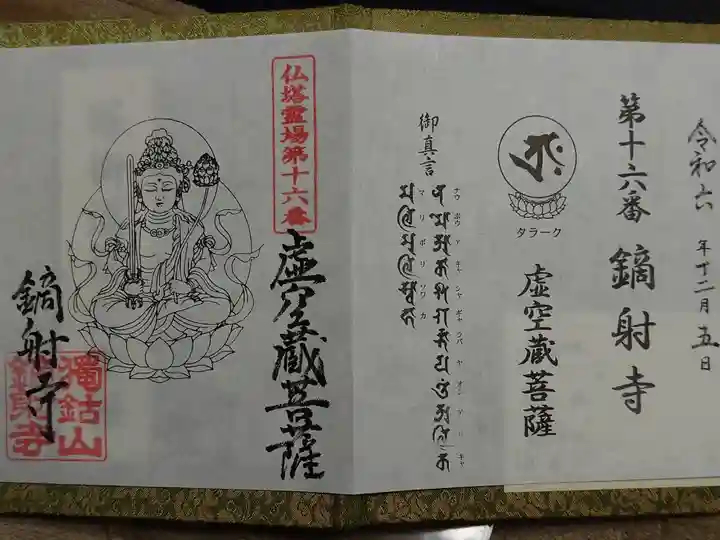 令和六年十二月五日
第十六番 鏑射寺
タラーク
虚空蔵菩薩
御真言
ナウ ボウ ア キャ シャ ギャ ラバ ヤ オン ア リ キャ
マ リ ボリ ソワ カ
仏塔霊場第十六番
虚空蔵菩薩
鏑射寺
獨鈷山
鏑射寺